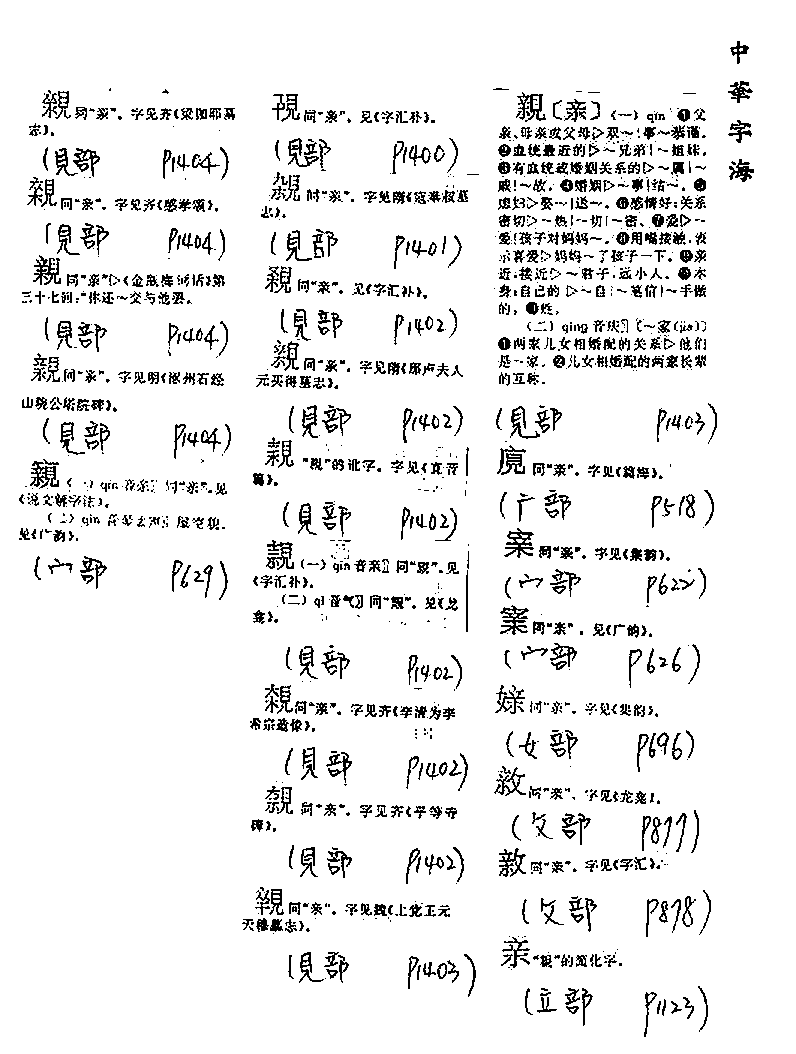 中華字海
親〔亲〕(一) qīn ❶父
亲、母亲或父母▷双～|事～恭谨。
❷血统最近的▷～兄弟|～姐妹。
❸有血统或婚姻关系的▷～属|～
戚|～故。❹婚姻▷～事|结～。❺
媳妇▷娶～|送～。❻感情好;关系
密切▷～热|～切|～密。❼爱▷～
爱|孩子对妈妈～。❽用嘴接触,表
示喜爱▷妈妈～了孩子一下。❾亲
近,接近▷～君子,远小人。❿本
身;自己的▷～自|～笔信|～手做
的。⓫姓。
(二) qìng 音庆〖～家(jia)〗
❶两家儿女相婚配的关系▷他们
是～家。❷儿女相婚配的两家长辈
的互称。
(見部 P1403)
同“亲”。字见《篇海》。
(广部 P518)
寀同“亲”。字见《集韵》。
(宀部 P622)
同“亲”。见《广韵》。
(宀部 P626)
同“亲”。字见《集韵》。
(女部 P696)
同“亲”。字见《龙龛》。
(攵部 P877)
同“亲”。字见《字汇》。
(攵部 P878)
亲“親”的简化字。
(立部 P1123)
同“亲”。见《字汇补》。
(見部 P1400)
同“亲”。字见隋《寇奉叔墓
志》。
(見部 P1401)
同“亲”。见《字汇补》。
(見部 P1402)
同“亲”。字见隋《邢卢夫人
元买得墓志》。
(見部 P1402)
“親”的讹字。字见《直音
篇》。
(見部 P1402)
(一) qīn 音亲〖同“親”。见
《字汇补》。
(二) qì 音气〖同“”。见《龙
龛》。
(見部 P1402)
同“亲”。字见齐《李清为李
希宗造像》。
(見部 P1402)
同“亲”。字见齐《平等寺
碑》。
(見部 P1402)
同“亲”。字见魏《上党王元
天穆墓志》。
(見部 P1403)
同“亲”。字见齐《梁伽耶墓
志》。
(見部 P1404)
同“亲”。字见齐《感孝颂》。
(見部 P1404)
同“亲”▷《金瓶梅词话》第
三十七回:“你还～交与他罢。
(見部 P1404)
同“亲”。字见明《涿州石经
山琬公塔院碑》。
(見部 P1404)
寴(一) qīn 音亲〖同“亲”。见
《说文解字注》。
(二) qìn 屋空貌。
见《广韵》。
(宀部 P629)